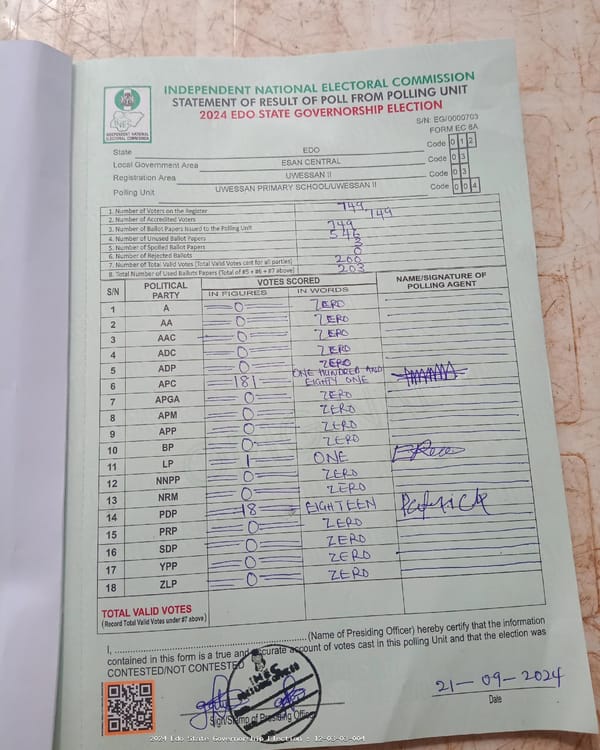 INDEPENDENT NATIONAL ELECTORAL COMMISSION
STATEMENT OF RESULT OF POLL FROM POLLING UNIT
2024 EDO STATE GOVERNORSHIP ELECTION
INEC
INDEPENDENT NATIONAL ELECTORAL COMMISSION
S/N: EG/0000703
FORM EC 8A
State EDO Code 0 1 2
Local Government Area ESAN CENTRAL Code 0 3
Registration Area UWESSAN II Code 0 3
Polling Unit UWESSAN PRIMARY SCHOOL/UWESSAN II Code 0 0 4
1. Number of Voters on the Register 749
2. Number of Accredited Voters
749
3. Number of Ballot Papers Issued to the Polling Unit 749
4. Number of Unused Ballot Papers 546
5. Number of Spoiled Ballot Papers 3
6. Number of Rejected Ballots 0
7. Number of Total Valid Votes (Total Valid Votes cast for all parties) 200
8. Total Number of Used Ballots Papers (Total of #5 + #6 + #7 above) 203
S/N POLITICAL PARTY VOTES SCORED NAME/SIGNATURE OF POLLING AGENT
IN FIGURES IN WORDS
1 A 0 ZERO
2 AA 0 ZERO
3 AAC 0 ZERO
4 ADC 0 ZERO
5 ADP 0 ZERO
6 APC 181 ONE HUNDRED AND EIGHTY ONE
7 APGA 0 ZERO
8 APM 0 ZERO
9 APP 0 ZERO
10 BP 0 ZERO
11 LP 1 ONE
12 NNPP 0 ZERO
13 NRM 0 ZERO
14 PDP 18 EIGHTEEN
15 PRP 0 ZERO
16 SDP 0 ZERO
17 YPP 0 ZERO
18 ZLP 0 ZERO
TOTAL VALID VOTES
(Record Total Valid Votes under #7 above)
I, (Name of Presiding Officer) hereby certify that the information
contained in this form is a true and accurate account of votes cast in this polling Unit and that the election was
CONTESTED/NOT CONTESTED
INEC
Sign/Stamp of Presiding Officer
21-09-2024
Date
2024 Edo State Governorship Election : 12-03-03-004